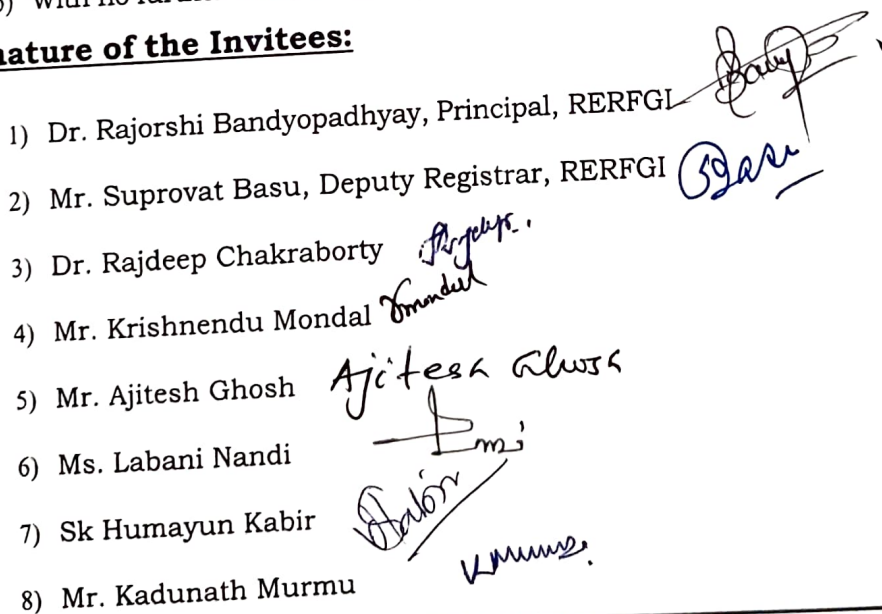 nature of the Invitees:
1) Dr. Rajorshi Bandyopadhyay, Principal, RERFGI
2) Mr. Suprovat Basu, Deputy Registrar, RERFGI Basu
3) Dr. Rajdeep Chakraborty
4) Mr. Krishnendu Mondal
5) Mr. Ajitesh Ghosh Ajitesh Ghosh
6) Ms. Labani Nandi
7) Sk Humayun Kabir
8) Mr. Kadunath Murmu